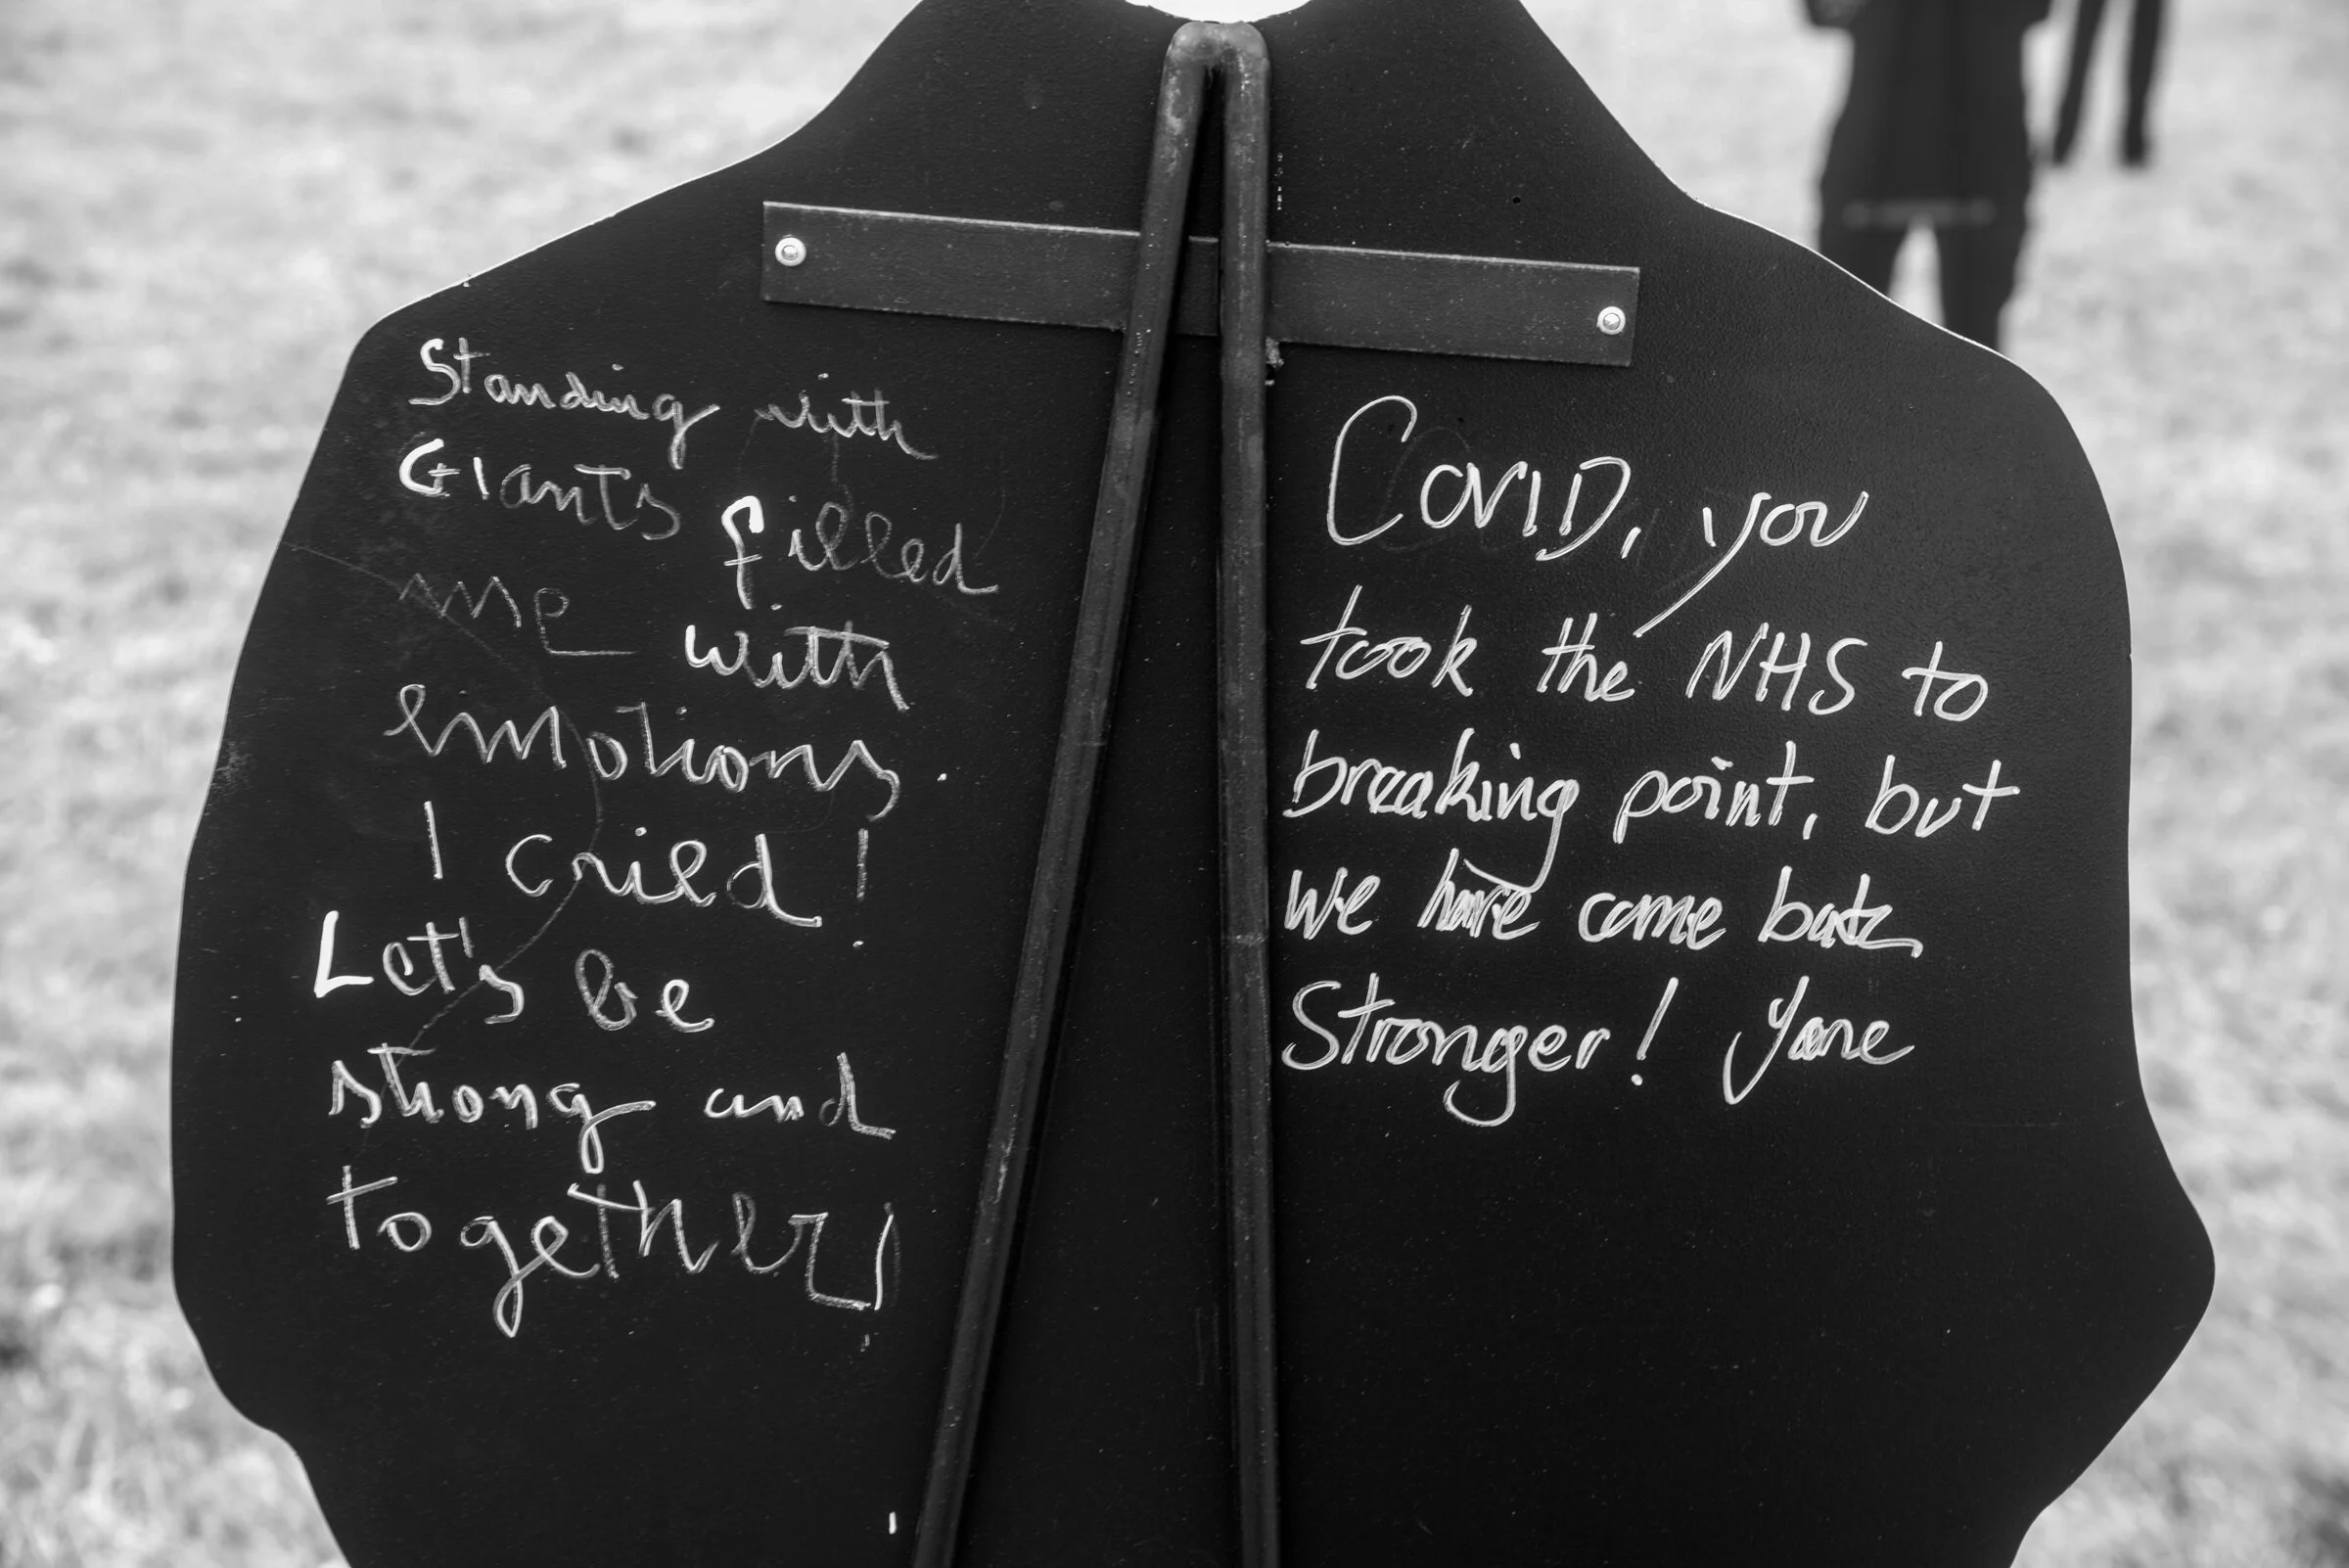 Standing with
Giants filled
me with
emotions.
I cried!
Let's be
strong and
together!
Covid, you
took the NHS to
breaking point, but
we have come back
Stronger! Yane